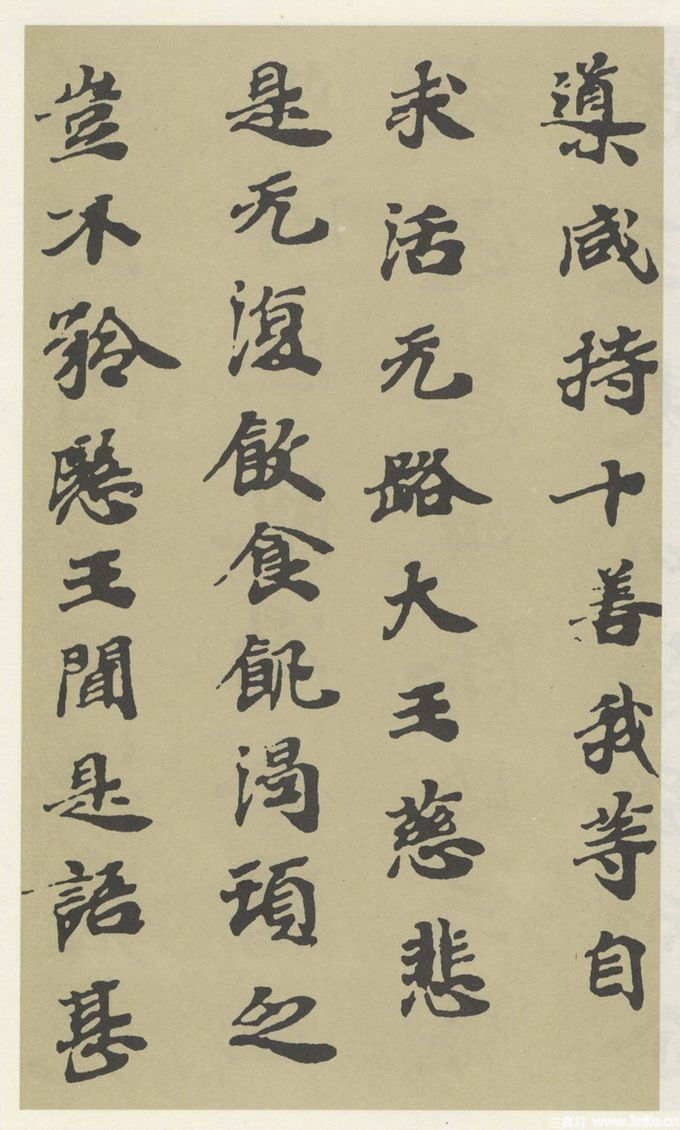 導咸持十善我等自
求活无路大王慈悲
是无復飲食飢渴頓乏
豈不矜愍王聞是語甚
www.3zitie.cn